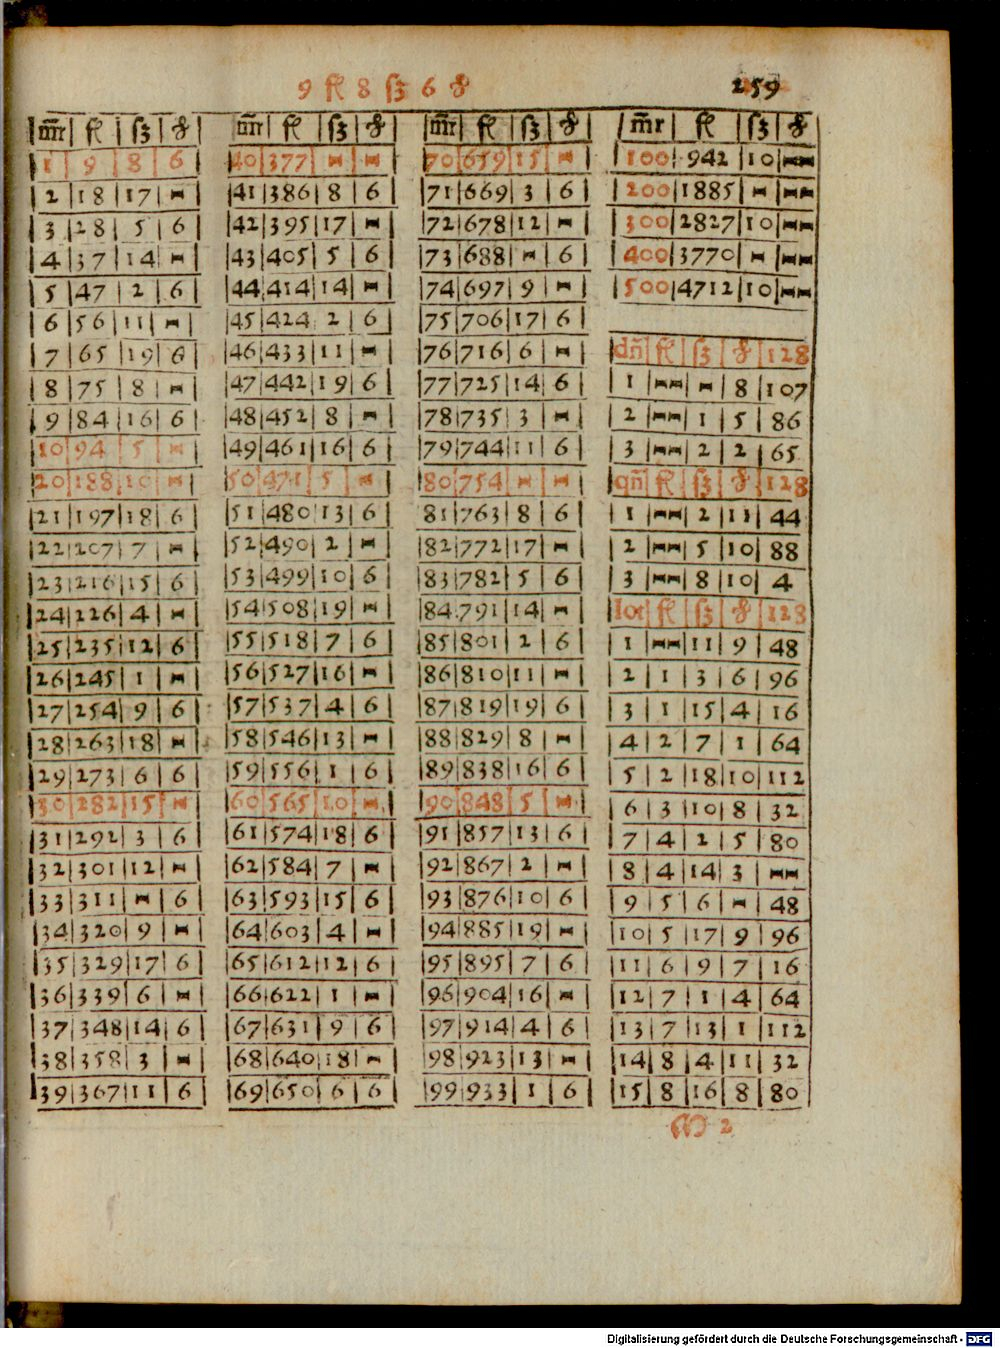 9 fl 8 ſʒ 6 ₰
259
m̄r | fl | ſʒ | ₰
1 | 9 | 8 | 6
2 | 18 | 17 | –
3 | 28 | 5 | 6
4 | 37 | 14 | –
5 | 47 | 2 | 6
6 | 56 | 11 | –
7 | 65 | 19 | 6
8 | 75 | 8 | –
9 | 84 | 16 | 6
10 | 94 | 5 | –
20 | 188 | 10 | –
21 | 197 | 18 | 6
22 | 207 | 7 | –
23 | 216 | 15 | 6
24 | 226 | 4 | –
25 | 235 | 12 | 6
26 | 245 | 1 | –
27 | 254 | 9 | 6
28 | 263 | 18 | –
29 | 273 | 6 | 6
30 | 282 | 15 | –
31 | 292 | 3 | 6
32 | 301 | 12 | –
33 | 311 | – | 6
34 | 320 | 9 | –
35 | 329 | 17 | 6
36 | 339 | 6 | –
37 | 348 | 14 | 6
38 | 358 | 3 | –
39 | 367 | 11 | 6
m̄r | fl | ſʒ | ₰
40 | 377 | – | –
41 | 386 | 8 | 6
42 | 395 | 17 | –
43 | 405 | 5 | 6
44 | 414 | 14 | –
45 | 424 | 2 | 6
46 | 433 | 11 | –
47 | 442 | 19 | 6
48 | 452 | 8 | –
49 | 461 | 16 | 6
50 | 471 | 5 | –
51 | 480 | 13 | 6
52 | 490 | 2 | –
53 | 499 | 10 | 6
54 | 508 | 19 | –
55 | 518 | 7 | 6
56 | 527 | 16 | –
57 | 537 | 4 | 6
58 | 546 | 13 | –
59 | 556 | 1 | 6
60 | 565 | 10 | –
61 | 574 | 18 | 6
62 | 584 | 7 | –
63 | 593 | 15 | 6
64 | 603 | 4 | –
65 | 612 | 12 | 6
66 | 622 | 1 | –
67 | 631 | 9 | 6
68 | 640 | 18 | –
69 | 650 | 6 | 6
m̄r | fl | ſʒ | ₰
70 | 659 | 15 | –
71 | 669 | 3 | 6
72 | 678 | 12 | –
73 | 688 | – | 6
74 | 697 | 9 | –
75 | 706 | 17 | 6
76 | 716 | 6 | –
77 | 725 | 14 | 6
78 | 735 | 3 | –
79 | 744 | 11 | 6
80 | 754 | – | –
81 | 763 | 8 | 6
82 | 772 | 17 | –
83 | 782 | 5 | 6
84 | 791 | 14 | –
85 | 801 | 2 | 6
86 | 810 | 11 | –
87 | 819 | 19 | 6
88 | 829 | 8 | –
89 | 838 | 16 | 6
90 | 848 | 5 | –
91 | 857 | 13 | 6
92 | 867 | 2 | –
93 | 876 | 10 | 6
94 | 885 | 19 | –
95 | 895 | 7 | 6
96 | 904 | 16 | –
97 | 914 | 4 | 6
98 | 923 | 13 | –
99 | 933 | 1 | 6
m̄r | fl | ſʒ | ₰
100 | 942 | 10 | ––
200 | 1885 | – | ––
300 | 2827 | 10 | ––
400 | 3770 | – | ––
500 | 4712 | 10 | ––
dn̄ | fl | ſʒ | ₰ | 128
1 | –– | – | 8 | 107
2 | –– | 1 | 5 | 86
3 | –– | 2 | 2 | 65
qn̄ | fl | ſʒ | ₰ | 128
1 | –– | 2 | 11 | 44
2 | –– | 5 | 10 | 88
3 | –– | 8 | 10 | 4
lot | fl | ſʒ | ₰ | 128
1 | –– | 11 | 9 | 48
2 | 1 | 3 | 6 | 96
3 | 1 | 15 | 4 | 16
4 | 2 | 7 | 1 | 64
5 | 2 | 18 | 10 | 112
6 | 3 | 10 | 8 | 32
7 | 4 | 2 | 5 | 80
8 | 4 | 14 | 3 | ––
9 | 5 | 6 | – | 48
10 | 5 | 17 | 9 | 96
11 | 6 | 9 | 7 | 16
12 | 7 | 1 | 4 | 64
13 | 7 | 13 | 1 | 112
14 | 8 | 4 | 11 | 32
15 | 8 | 16 | 8 | 80
M 2
Digitalisierung gefördert durch die Deutsche Forschungsgemeinschaft - DFG